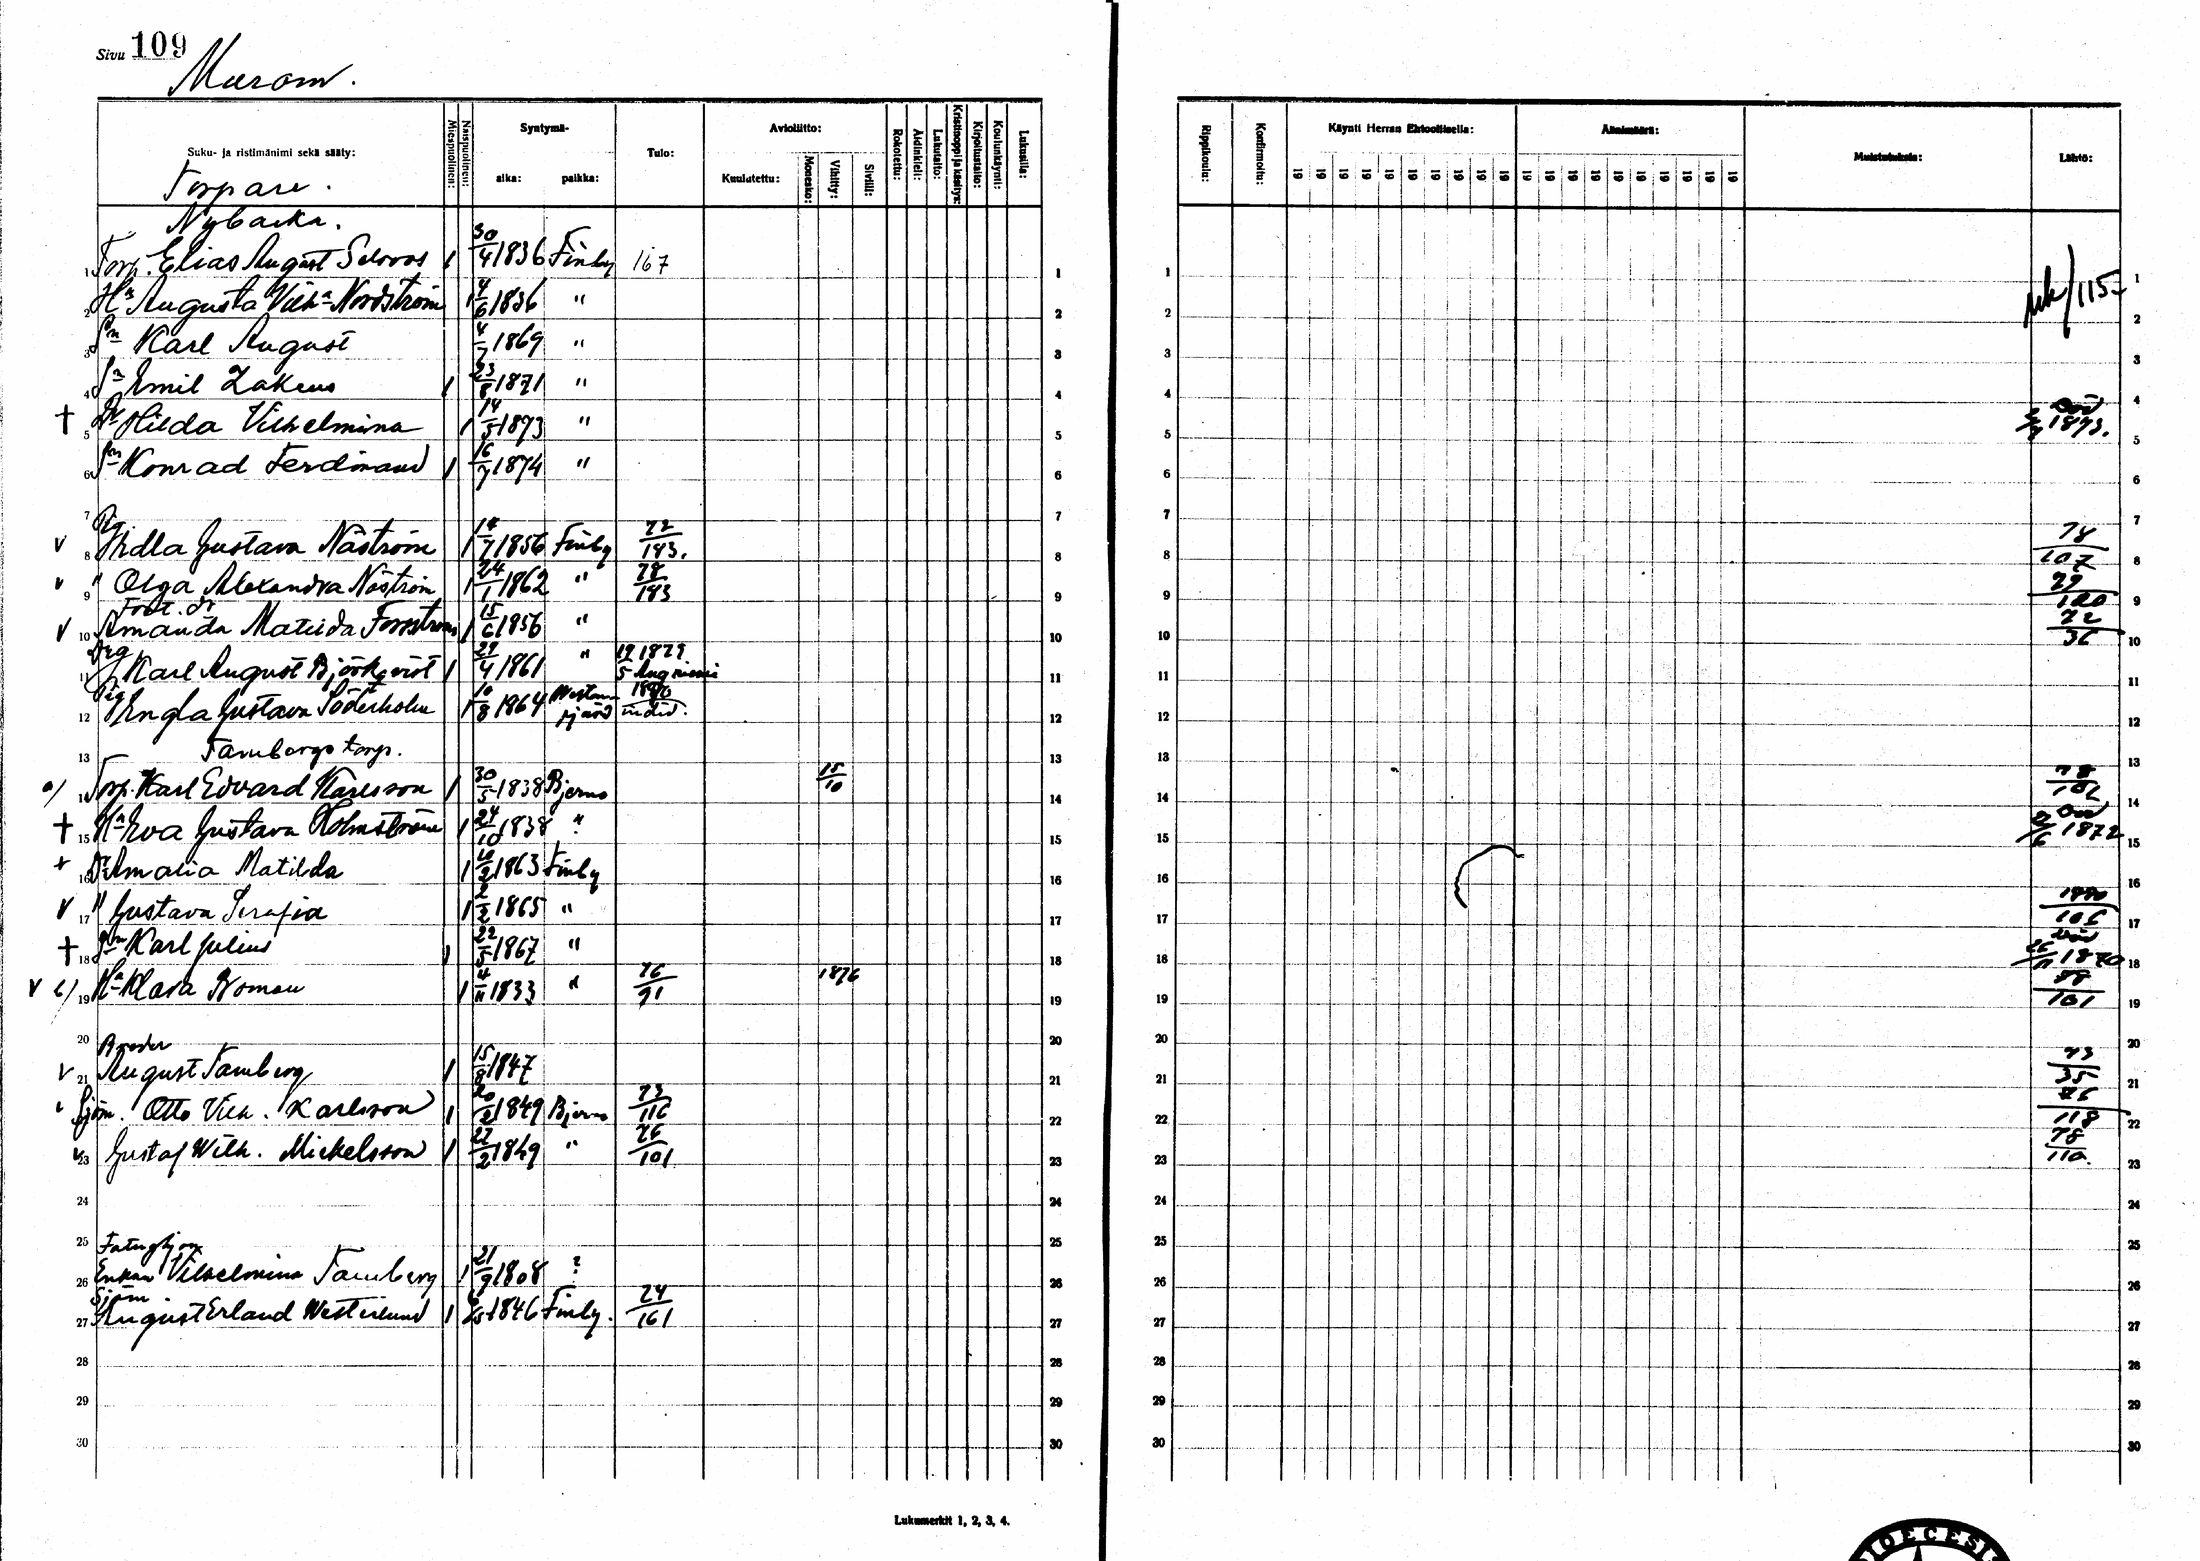 Sivu 109
Murom.
Suku- ja ristimänimi sekä sääty:
Miespuolinen:
Naispuolinen:
Syntymä-
aika:
paikka:
Tulo:
Avioliitto:
Kuulutettu:
Monesko:
Vihitty:
Siviili:
Rokotettu:
Äidinkieli:
Lukutaito:
Kristinoppi ja käsitys:
Kirjoitustaito:
Koulunkäynti:
Lukusilla:
Rippikoulu:
Konfirmoitu:
Käynti Herran Ehtoollisella:
19 19 19 19 19 19 19 19 19 19
Äänimäärä:
19 19 19 19 19 19 19 19 19 19
Muistutuksia:
Lähtö:
Torpare.
Nybacka.
1 Torp. Elias August Selroos 1 30/4 1836 Finby 167 1 1 uk/115 1
2 Hu Augusta Vilh-a Nordström 1 4/6 1836 " 2 2 2
3 Sn Karl August 4/7 1869 " 3 3 3
4 Sn Emil Zakeus 1 23/8 1871 " 4 4 4
† 5 Dr Hilda Vilhelmina 1 14/5 1873 " 5 5 Död 1873. 5
6 Sn Konrad Ferdinand 1 16/7 1874 " 6 6 6
7 7 7 7
Pig
v 8 Hedla Gustava Näström 1 14/7 1856 Finby 72/143. 8 8 78/107 8
v 9 " Olga Alexandra Näström 1 24/1 1862 " 78/143 9 9 79/100 9
Fost. dr
v 10 Amanda Matilda Forsström 1 15/6 1856 " 10 10 72/36 10
Drg
11 Karl August Björkqvist 1 29/4 1861 " 19/5 1879 11 11 11
Pig
12 Engla Gustava Söderholm 1 10/8 1864 1880 12 12 12
13 Tambergs torp. 13 13 13
a) 14 Torp. Karl Edvard Karlsson 1 30/5 1838 Bjerno 15/10 14 14 78/102 14
† 15 Ha Eva Gustava Holmström 1 24/10 1838 " 15 15 Död 2/6 1872 15
+ 16 Dr Amalia Matilda 1 10/2 1863 Finby 16 16 16
v 17 " Gustava Serafia 1 2/2 1865 " 17 17 1880/106 17
† 18 Sn Karl Julius 1 22/5 1867 " 18 18 Död 1870 18
v b) 19 Ha Klara Boman 1 4/11 1833 " 76/91 1876 19 19 88/101 19
20 20 20 20
Broder
v 21 August Tamberg 1 15/8 1847 21 21 73/35 21
v Sjöm. Otto Vilh. Karlsson 1 20/2 1849 Bjerno 73/116 22 22 76/118 22
v 23 Gustaf Wilh. Mickelsson 1 27/2 1849 " 76/101 23 23 78/110. 23
24 24 24 24
25 Fatighjon 25 25 25
26 Enkan Vilhelmina Tamberg 1 21/9 1808 ? 26 26 26
Sjöm
27 August Erland Westerlund 1 1846 Finby. 74/161 27 27 27
28 28 28 28
29 29 29 29
30 30 30 30
Lukumerkit 1, 2, 3, 4.